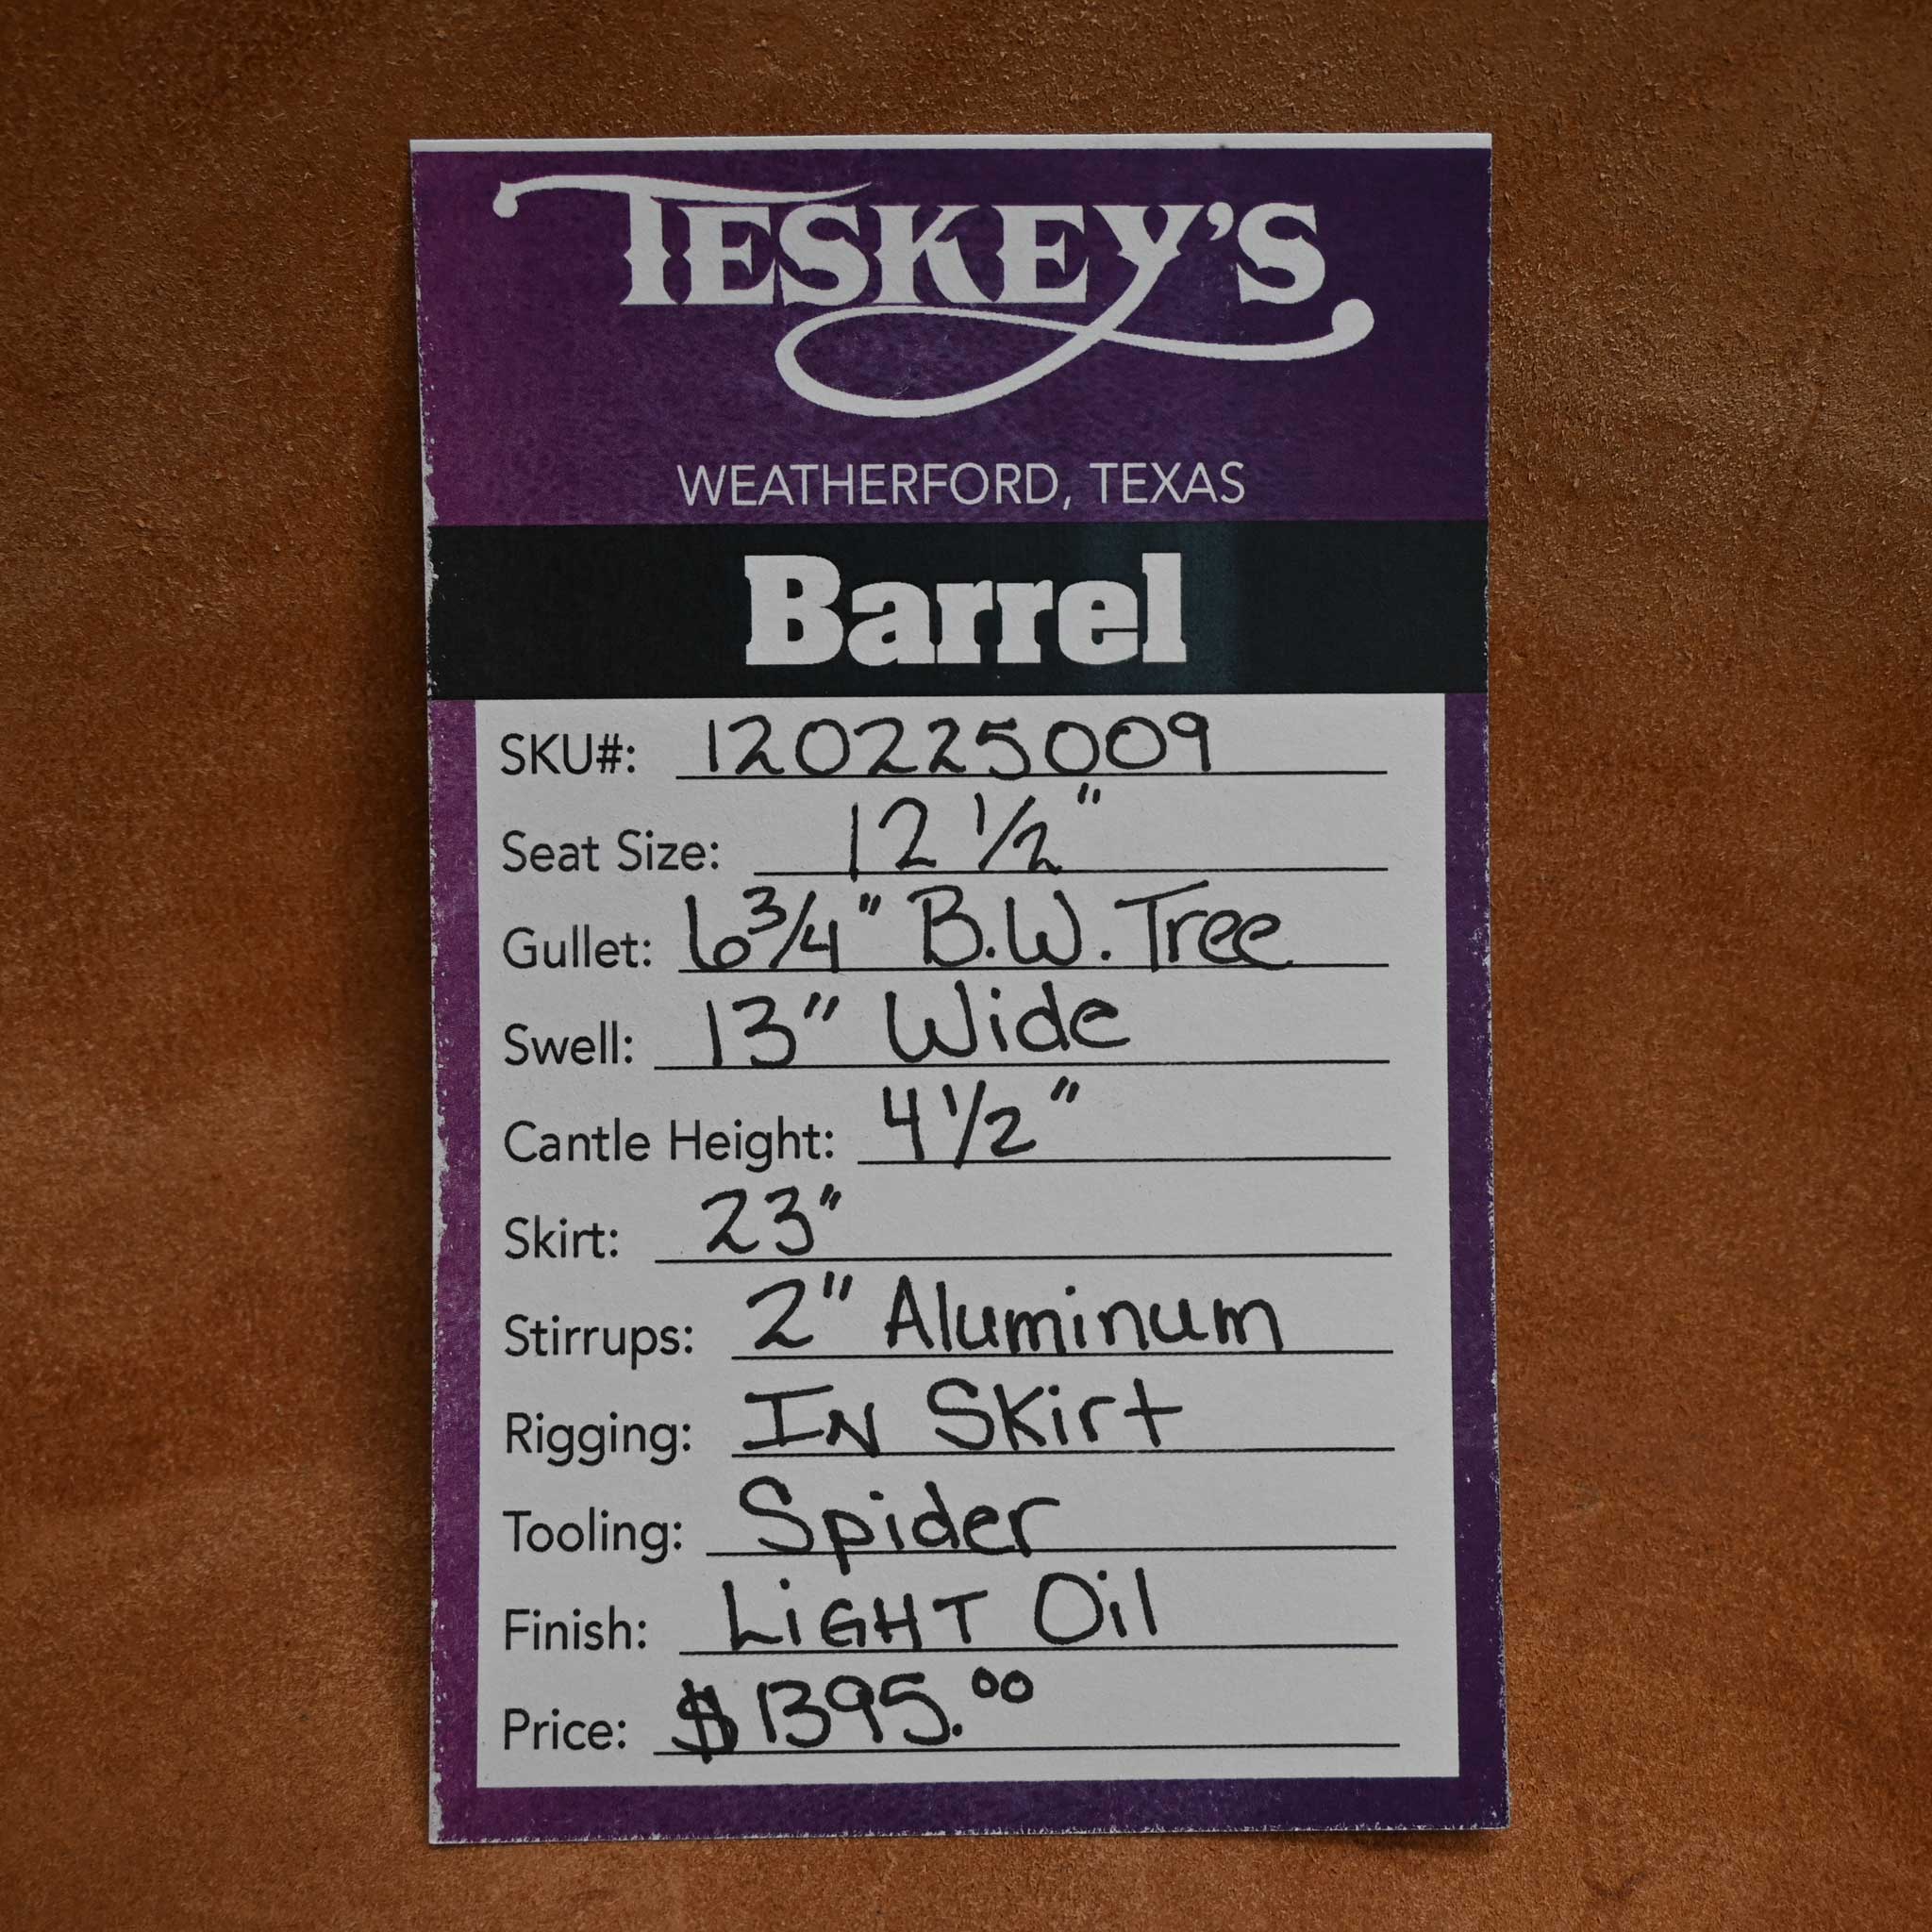 TESKEY'S
WEATHERFORD, TEXAS
Barrel
SKU#: 120225009
Seat Size: 12 1/2"
Gullet: 6 3/4" B.W. Tree
Swell: 13" Wide
Cantle Height: 4 1/2"
Skirt: 23"
Stirrups: 2" Aluminum
Rigging: IN SKirt
Tooling: Spider
Finish: LiGHT Oil
Price: $1395.00